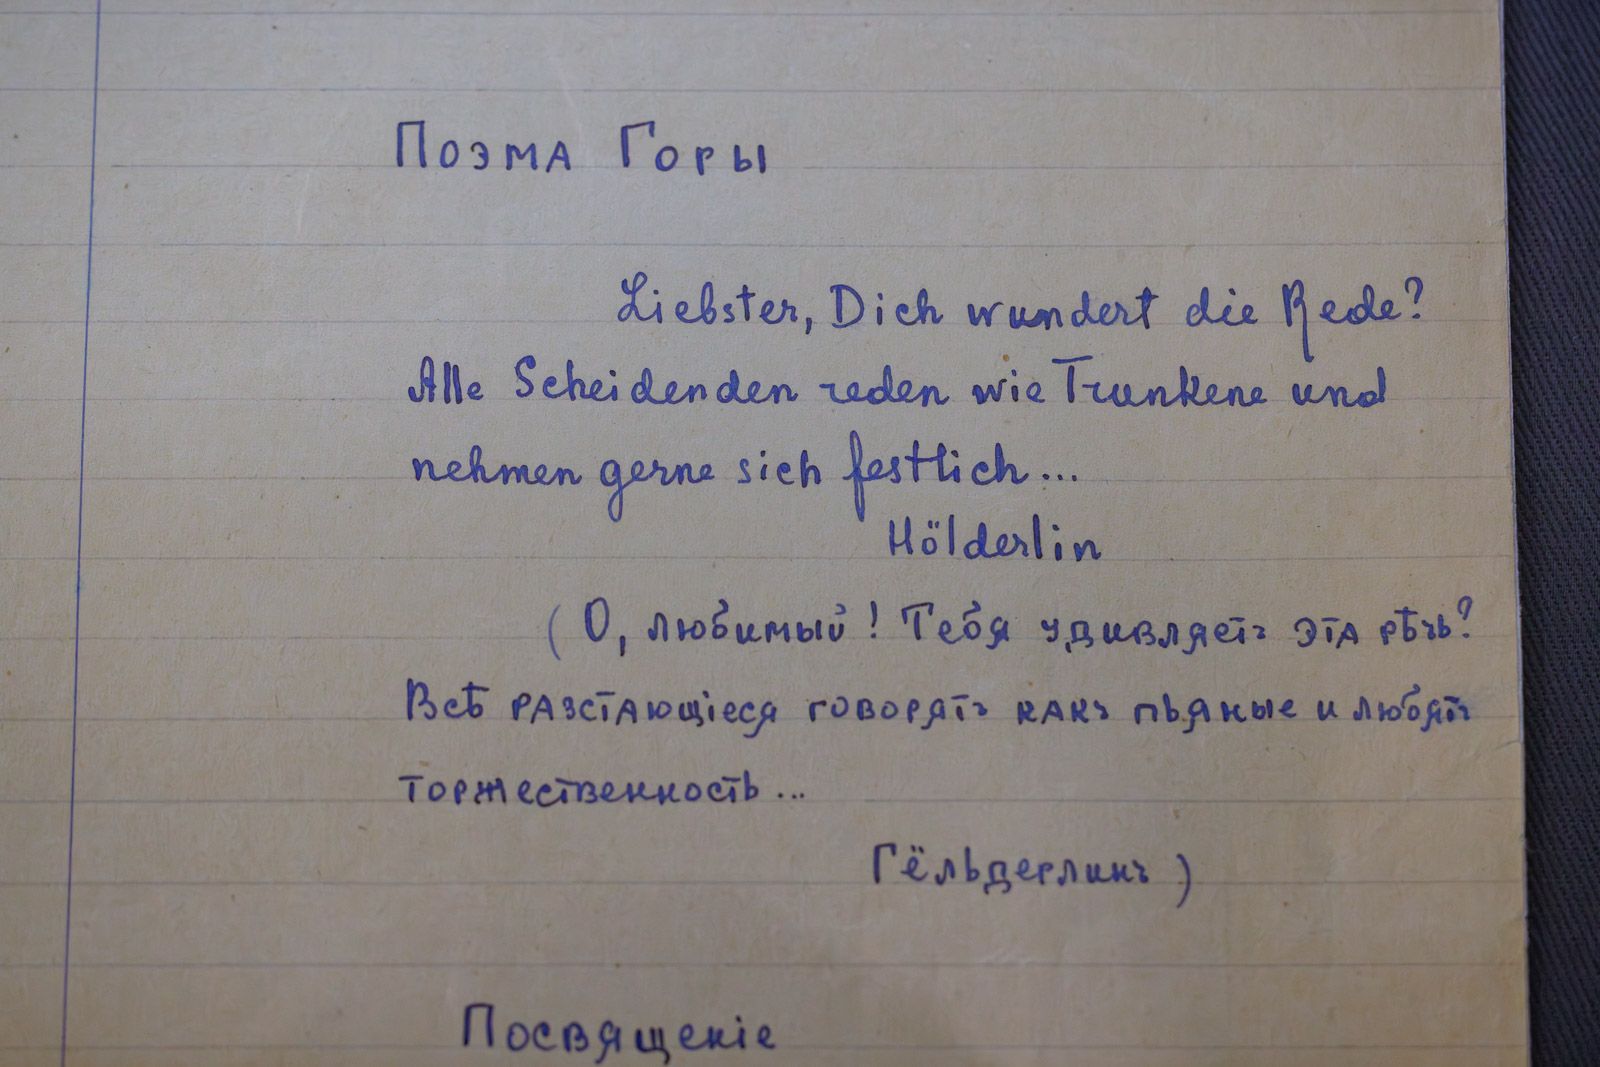 Поэма Горы
Liebster, Dich wundert die Rede?
Alle Scheidenden reden wie Trunkene und
nehmen gerne sich festlich...
Hölderlin
(О, любимый! Тебя удивляетъ эта рѣчь?
Всѣ разстающіеся говорятъ какъ пьяные и любятъ
торжественность...
Гёльдерлинъ)
Посвященіе